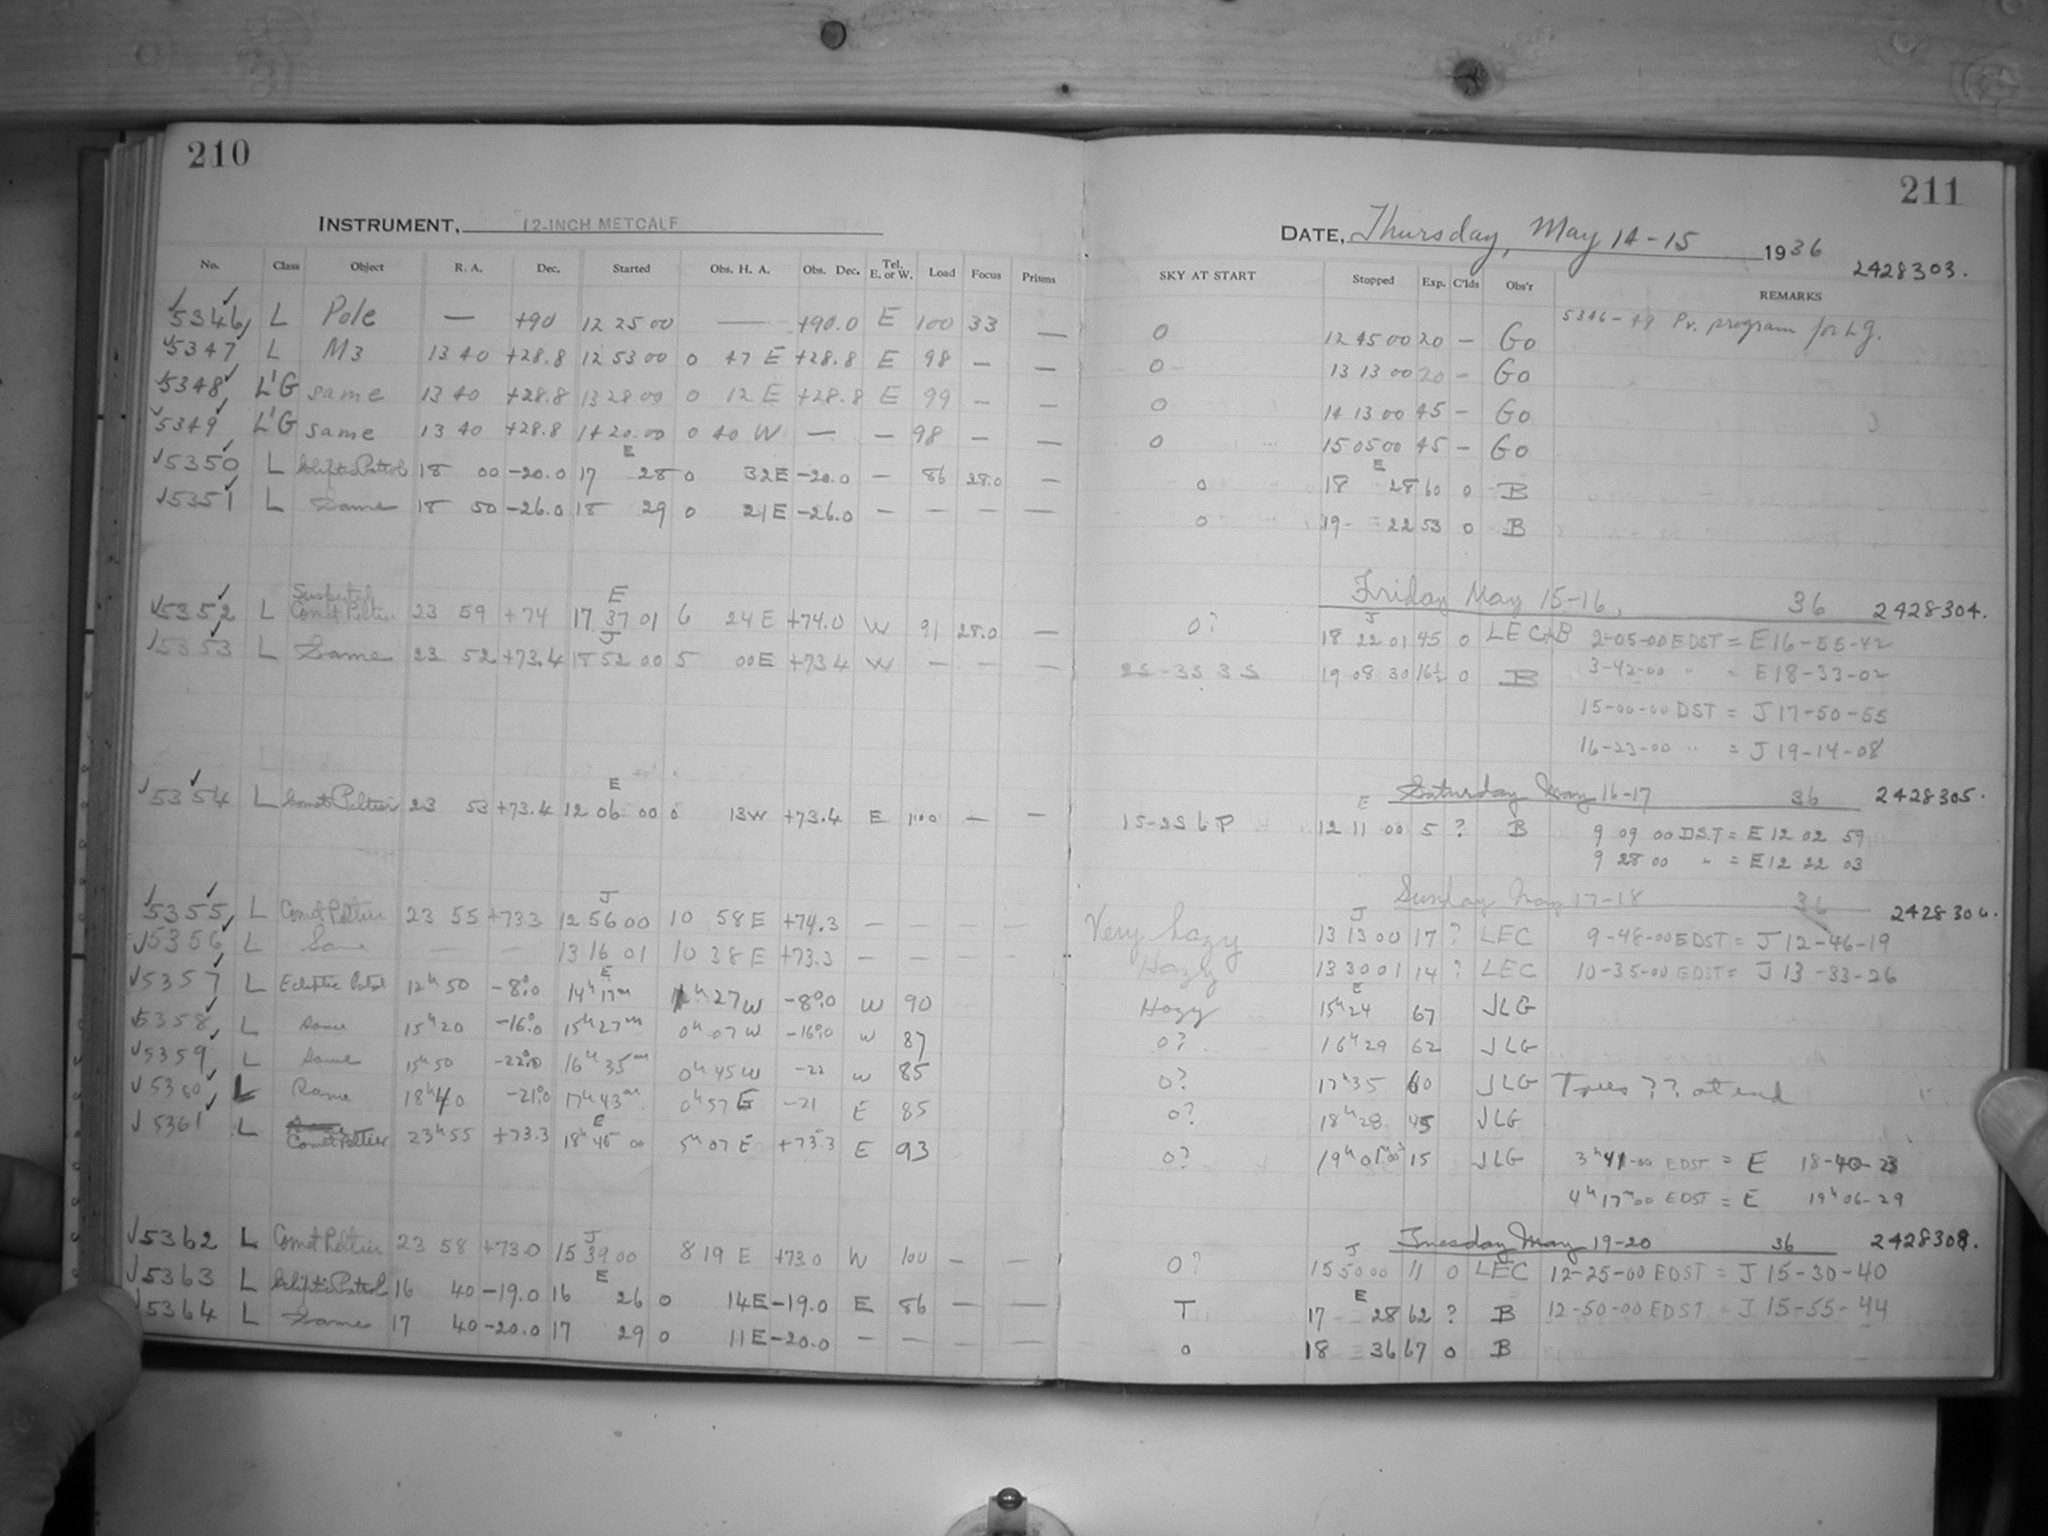 210
INSTRUMENT, 12-INCH METCALF
No. Class Object R. A. Dec. Started Obs. H. A. Obs. Dec. Tel. E. or W. Load Focus Prisms
5346 L Pole — +90 12 25 00 — +90.0 E 100 33 —
5347 L M3 13 40 +28.8 12 53 00 0 47 E +28.8 E 98 — —
5348 L'G same 13 40 +28.8 13 28 00 0 12 E +28.8 E 99 — —
5349 L'G same 13 40 +28.8 14 20 00 0 40 W — — 98 — —
E
5350 L Ecliptic Patrol 18 00 -20.0 17 28 0 32E -20.0 — 86 28.0 —
5351 L Same 18 50 -26.0 18 29 0 21E -26.0 — — — —
Suspected E
5352 L Comet Peltier 23 59 +74 17 37 01 6 24E +74.0 W 91 28.0 —
J
5353 L Same 23 52 +73.4 18 52 00 5 00E +73 4 W — — —
E
5354 L Comet Peltier 23 53 +73.4 12 06 00 0 13W +73.4 E 100 — —
J
5355 L Comet Peltier 23 55 +73.3 12 56 00 10 58E +74.3 — — — —
5356 L Same — — 13 16 01 10 38E +73.3 — — — —
E
5357 L Ecliptic Patrol 12h 50 -8°.0 14h 17m 1h 27W -8°.0 W 90
5358 L Same 15h 20 -16°.0 15h 27m 0h 07W -16°.0 W 87
5359 L Same 15h 50 -22°.0 16h 35m 0h 45W -22 W 85
5360 L Same 18h 40 -21°.0 17h 43m 0h 57E -21 E 85
E
5361 L Comet Peltier 23h 55 +73.3 18h 46m 00 5h 07E +73.3 E 93
J
5362 L Comet Peltier 23 58 +73.0 15 39 00 8 19 E +73.0 W 100 — —
E
5363 L Ecliptic Patrol 16 40 -19.0 16 26 0 14E -19.0 E 86 — —
5364 L Same 17 40 -20.0 17 29 0 11E -20.0 — — — —
211
DATE, Thursday, May 14-15 1936 2428303.
SKY AT START Stopped Exp. C'lds Obs'r REMARKS
5346-49 Pr. program for Lg.
0 12 45 00 20 — Go
0 13 13 00 20 — Go
0 14 13 00 45 — Go
0 15 05 00 45 — Go
E
0 18 28 60 0 B
0 19 22 53 0 B
Friday May 15-16, 36 2428304.
J
0? 18 22 01 45 0 LEC+B 2-05-00 EDST = E 16-55-42
2S-3S 3S 19 08 30 16½ 0 B 3-42-00 " = E 18-33-02
15-00-00 DST = J 17-50-55
16-23-00 " = J 19-14-08
Saturday May 16-17 36 2428305.
E
1S-2S 6P 12 11 00 5 ? B 9 09 00 D.S.T = E 12 02 59
9 28 00 " = E 12 22 03
Sunday May 17-18 36 2428306.
J
Very hazy 13 13 00 17 ? LEC 9-48-00 EDST = J 12-46-19
Hazy 13 30 01 14 ? LEC 10-35-00 EDST = J 13-33-26
E
Hazy 15h 24 67 JLG
0? 16h 29 62 JLG
0? 17h 35 60 JLG Trees ?? at end
0? 18h 28 45 JLG
0? 19h 01m 00s 15 JLG 3h 41-00 EDST = E 18-40-23
4h 17m 00 EDST = E 19h 06-29
Tuesday May 19-20 36 2428308.
J
0? 15 50 00 11 0 LEC 12-25-00 EDST = J 15-30-40
E
T 17 28 62 ? B 12-50-00 EDST = J 15-55-44
0 18 36 67 0 B